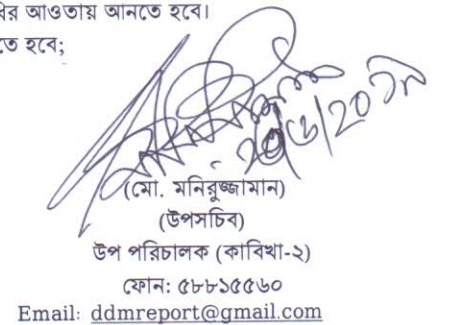 ধির আওতায় আনতে হবে।
তে হবে;
(মো. মনিরুজ্জামান)
(উপসচিব)
উপ পরিচালক (কাবিখা-২)
ফোন: ৫৮৮১৫৫৬০
Email: ddmreport@gmail.com